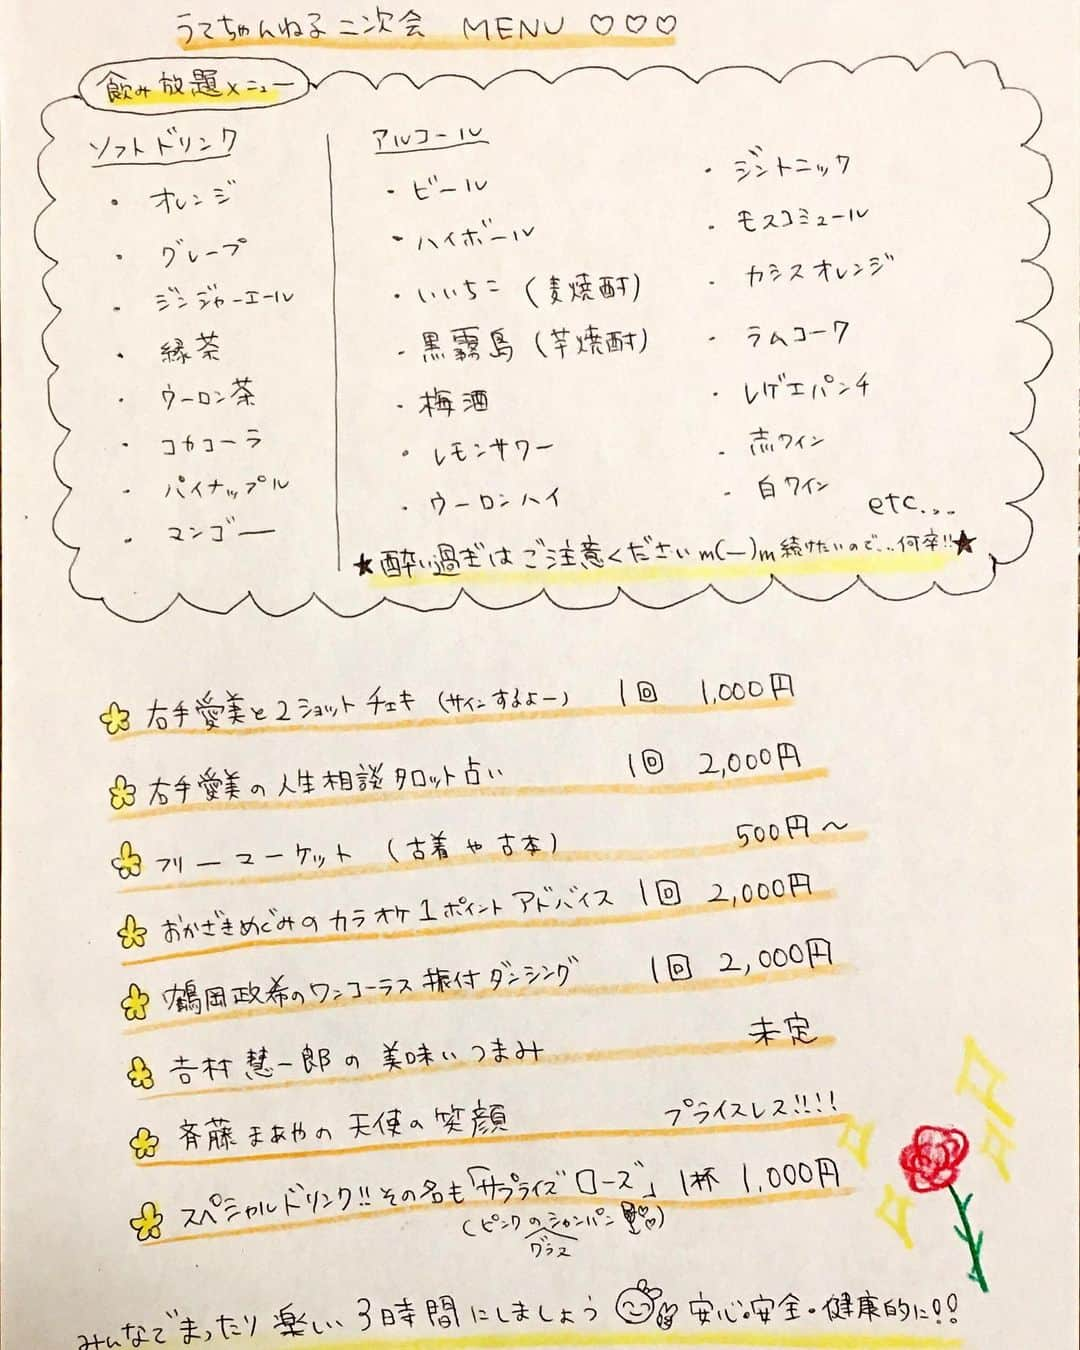 うてちゃんねる二次会 MENU ♡♡♡
飲み放題メニュー
ソフトドリンク
・オレンジ
・グレープ
・ジンジャーエール
・緑茶
・ウーロン茶
・コカコーラ
・パイナップル
・マンゴー
アルコール
・ビール
・ハイボール
・いいちこ (麦焼酎)
・黒霧島 (芋焼酎)
・梅酒
・レモンサワー
・ウーロンハイ
・ジントニック
・モスコミュール
・カシスオレンジ
・ラムコーク
・レゲエパンチ
・赤ワイン
・白ワイン
etc...
★酔い過ぎはご注意くださいm(一)m続けたいので...何卒!!★
右手愛美と2ショットチェキ (サインするよー) 1回 1,000円
右手愛美の人生相談タロット占い 1回 2,000円
フリーマーケット (古着や古本) 500円〜
おかざきめぐみのカラオケ1ポイントアドバイス 1回 2,000円
鶴岡政希のワンコーラス振付ダンシング 1回 2,000円
吉村慧一郎の美味いつまみ 未定
斉藤まあやの天使の笑顔 プライスレス!!!!
スペシャルドリンク!!その名も「サプライズローズ」1杯 1,000円
(ピンクのシャンパン♡♡)
グラス
みんなでまったり楽しい3時間にしましょう 安心・安全・健康的に!!